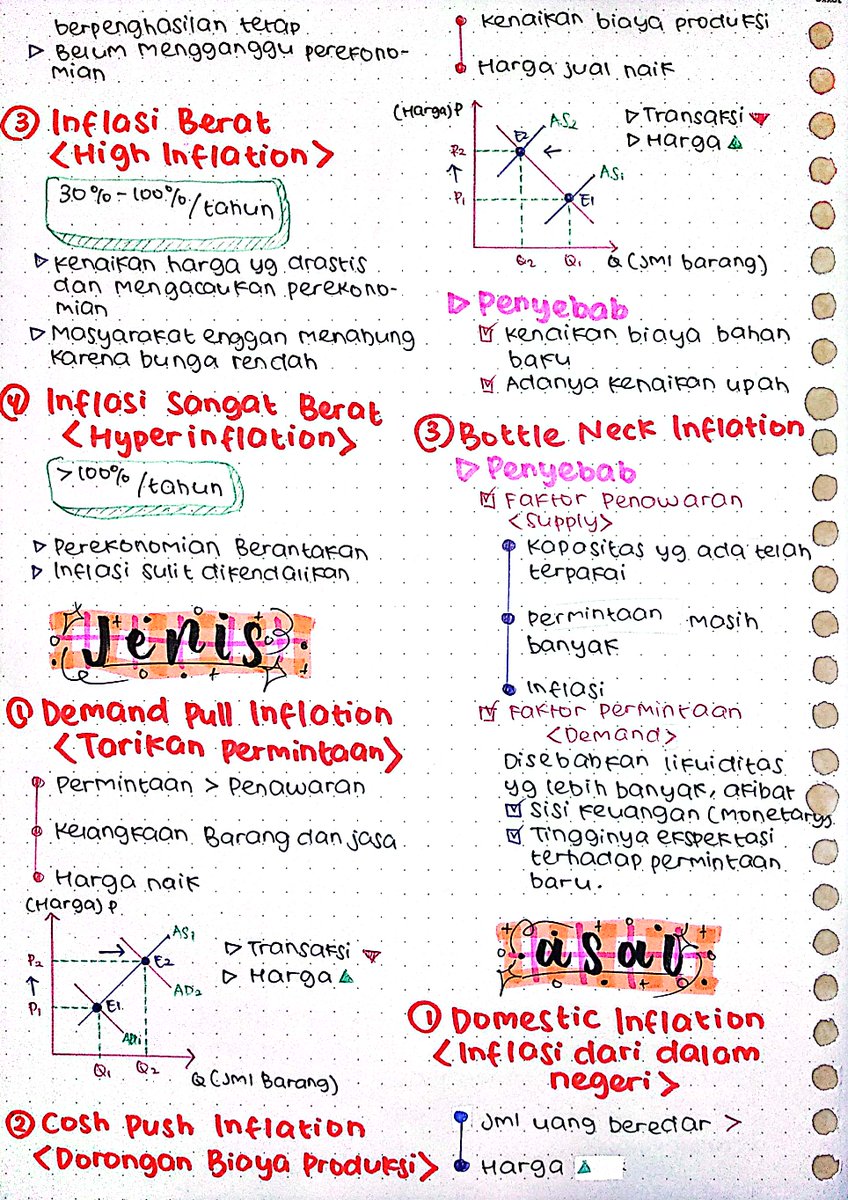 berpenghasilan tetap
▷ Belum mengganggu perekono-
mian
③ Inflasi Berat
<High Inflation>
30% - 100%/tahun
▷ Kenaikan harga yg drastis
dan mengacaukan perekono-
mian
▷ Masyarakat enggan menabung
karena bunga rendah
④ Inflasi Sangat Berat
<Hyperinflation>
>100%/tahun
▷ Perekonomian Berantakan
▷ Inflasi sulit dikendalikan
Jenis
① Demand Pull Inflation
<Tarikan Permintaan>
Permintaan > Penawaran
Kelangkaan Barang dan jasa
Harga naik
(Harga) P
AS1
P2
E2
AD2
P1
E1
AD1
Q1 Q2 Q (Jml Barang)
▷ Transaksi ▼
▷ Harga ▲
② Cosh Push Inflation
<Dorongan Biaya Produksi>
Kenaikan biaya produksi
Harga jual naik
(Harga) P
AS2
E2
P2
AS1
P1
E1
Q2 Q1 Q (Jml barang)
▷ Transaksi ▼
▷ Harga ▲
▷ Penyebab
☑ Kenaikan biaya bahan
baku
☑ Adanya kenaikan upah
③ Bottle Neck Inflation
▷ Penyebab
☑ Faktor Penawaran
<Supply>
Kapasitas yg ada telah
terpakai
permintaan masih
banyak
Inflasi
☑ Faktor Permintaan
<Demand>
Disebabkan likuiditas
yg lebih banyak, akibat
☑ Sisi keuangan (monetary)
☑ Tingginya ekspektasi
terhadap permintaan
baru.
asal
① Domestic Inflation
<Inflasi dari dalam
negeri>
Jml uang beredar >
Harga ▲